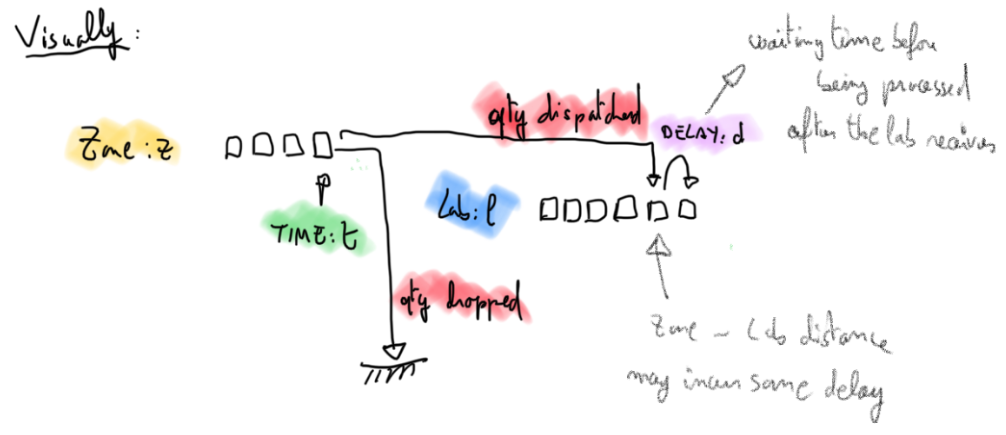 Visually :
waiting time before
being processed
after the lab receives
qty dispatched
DELAY: d
Zone: z
Lab: l
TIME: t
qty dropped
Zone - Lab distance
may incur some delay